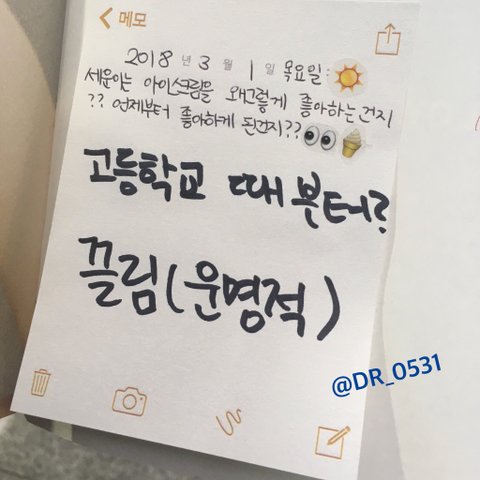 메모
2018년 3월 1일 목요일:
세운이는 아이스크림을 왜그렇게 좋아하는건지
?? 언제부터 좋아하게 된건지??
고등학교 때 부터?
끌림(운명적)
@DR_0531